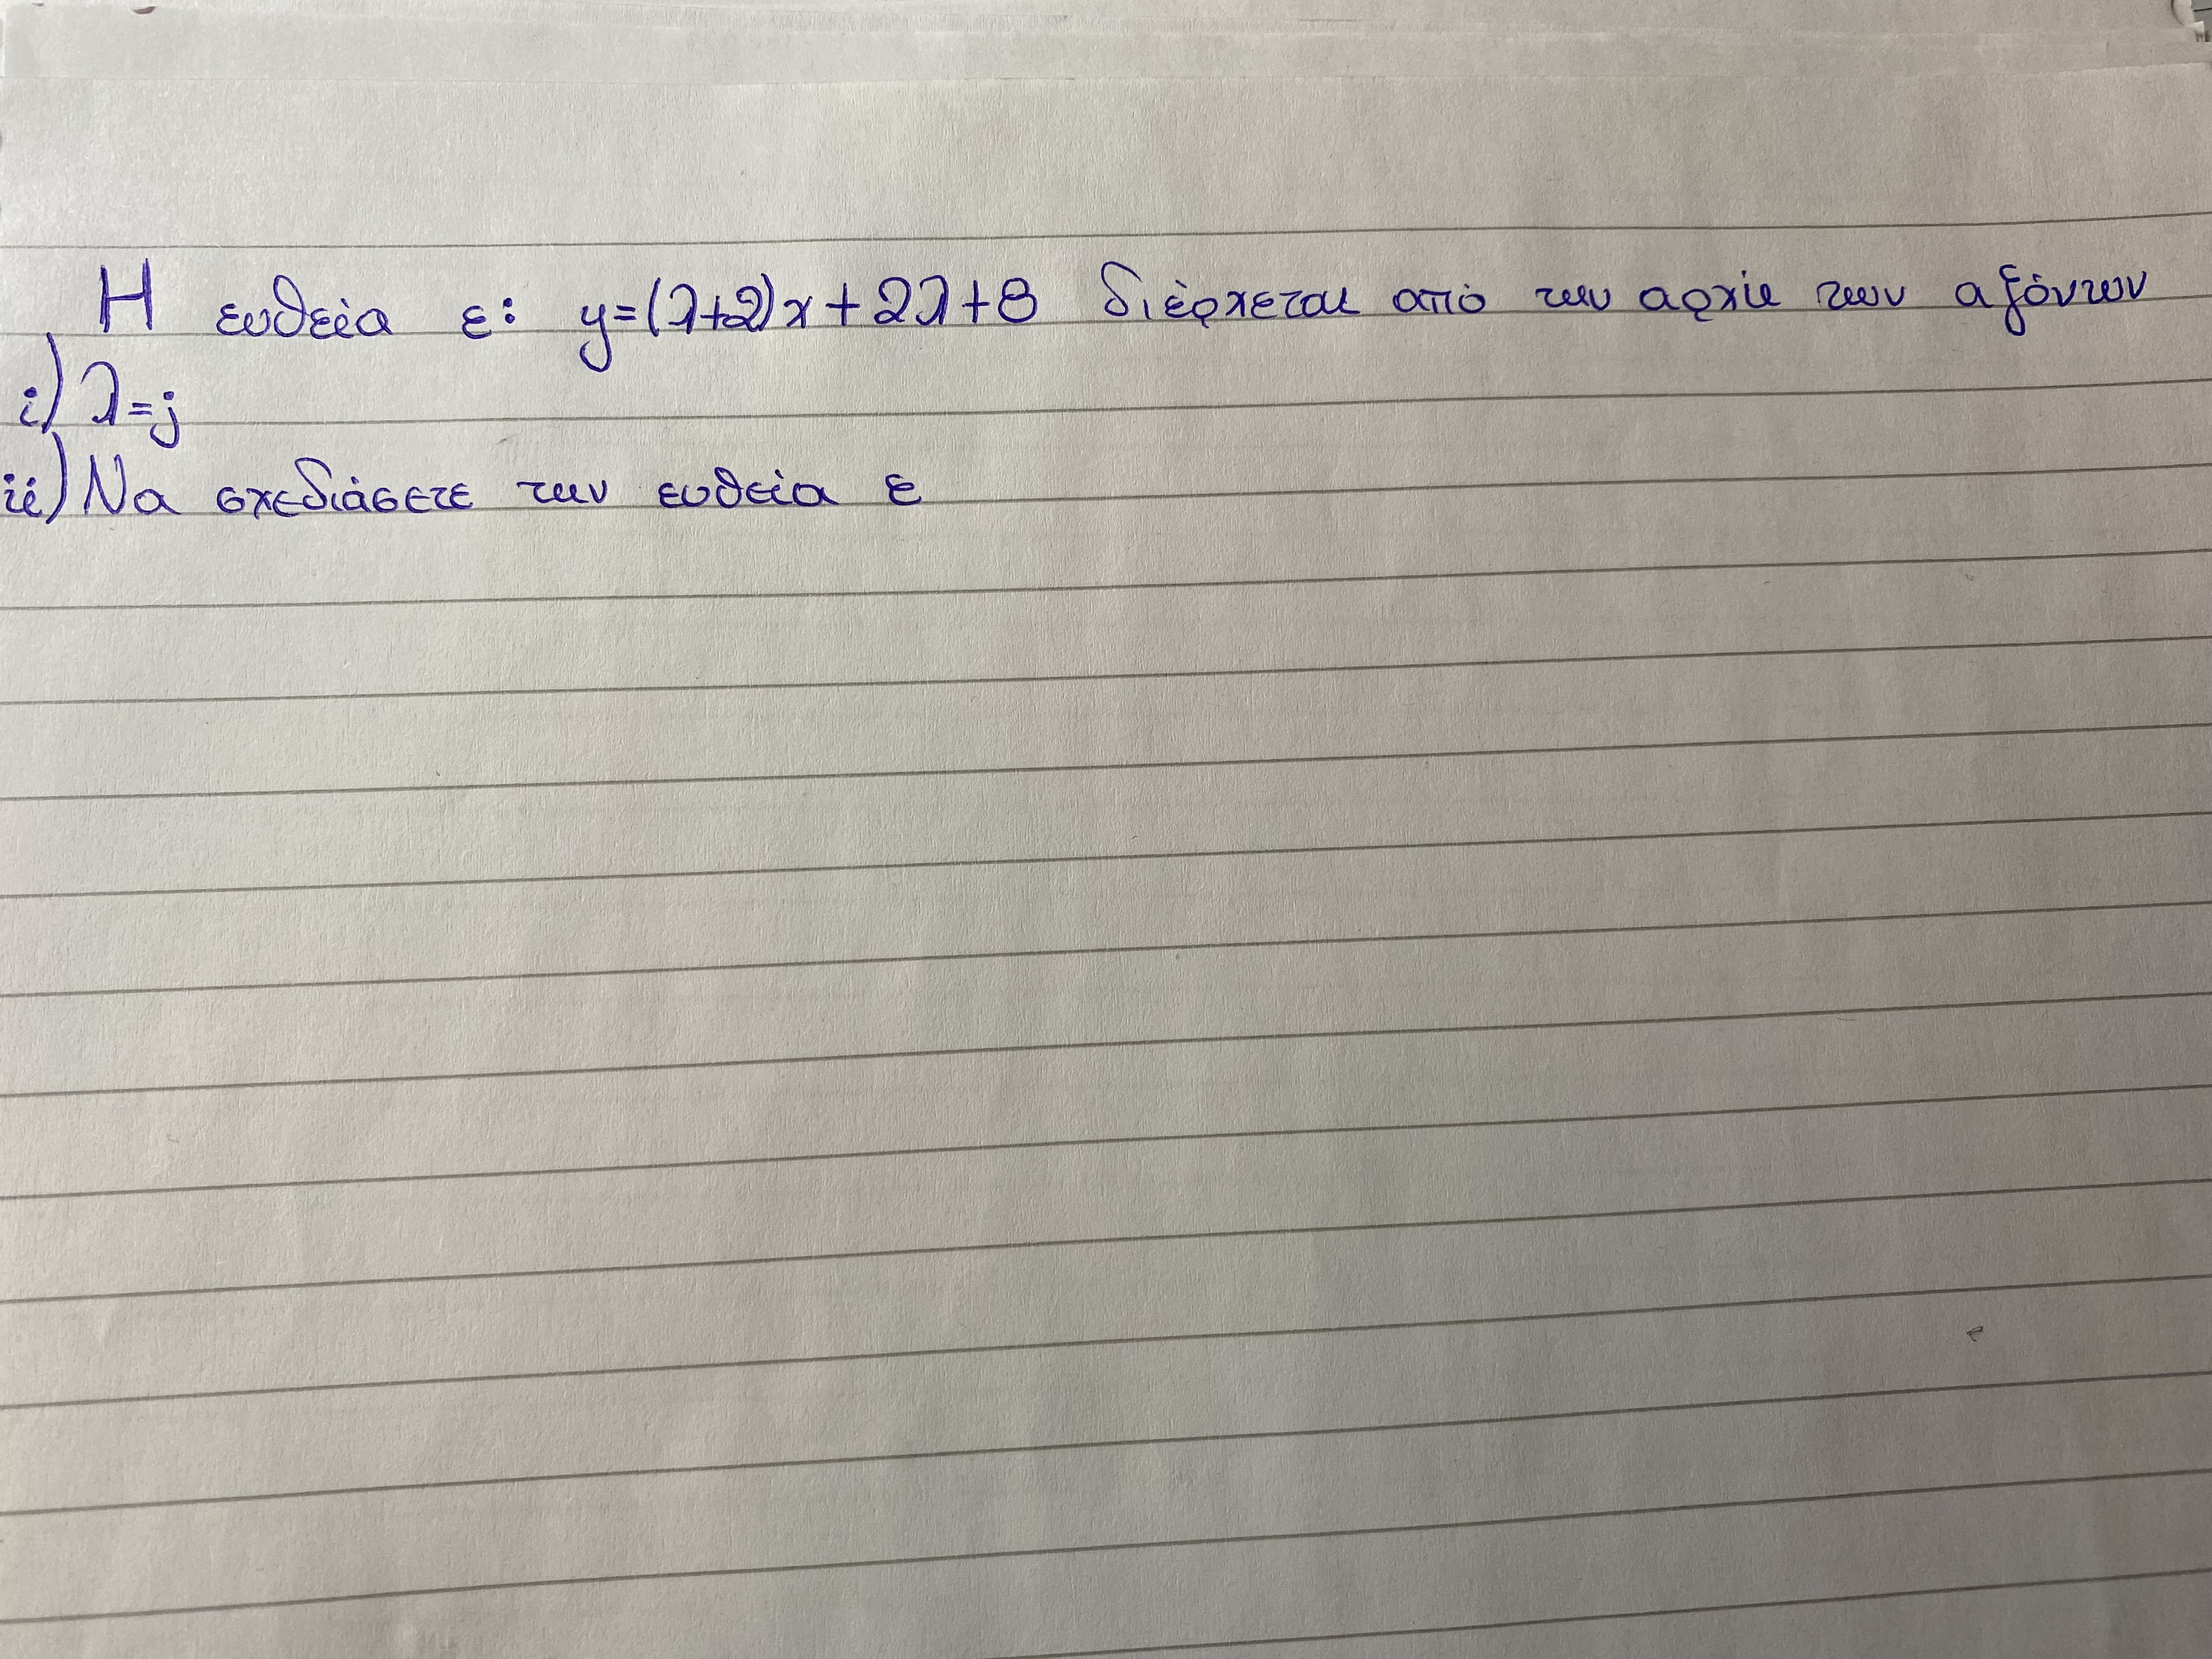 Η ευθεία ε: y=(λ+2)x+2λ+8 διέρχεται από την αρχή των αξόνων
i) λ=;
ii) Να σχεδιάσετε την ευθεία ε